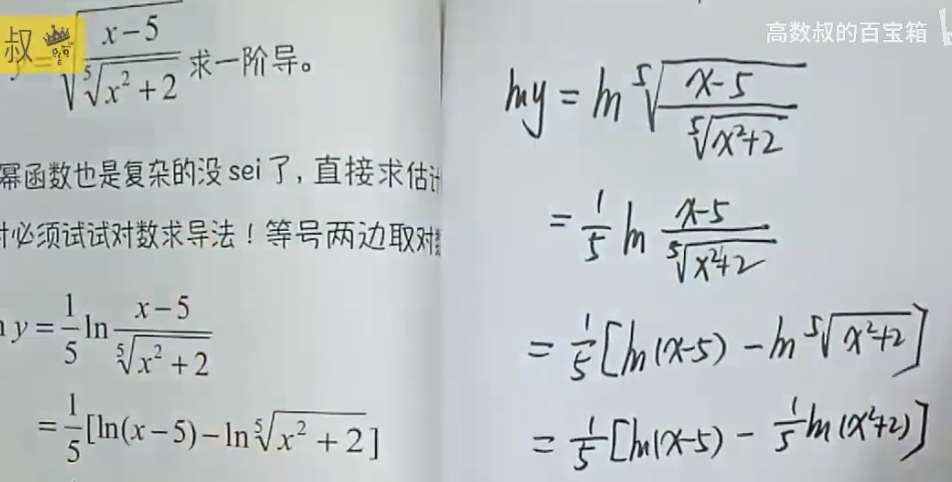 叔
y = \sqrt{\frac{x-5}{\sqrt[5]{x^2+2}}} 求一阶导。
幂函数也是复杂的没 sei 了，直接求估计
时必须试试对数求导法！等号两边取对数
ln y = \frac{1}{5} ln \frac{x-5}{\sqrt[5]{x^2+2}}
= \frac{1}{5} [ln(x-5) - ln \sqrt[5]{x^2+2}]
高数叔的百宝箱
ln y = ln \sqrt[5]{\frac{x-5}{\sqrt[5]{x^2+2}}}
= \frac{1}{5} ln \frac{x-5}{\sqrt[5]{x^2+2}}
= \frac{1}{5} [ln(x-5) - ln \sqrt[5]{x^2+2}]
= \frac{1}{5} [ln(x-5) - \frac{1}{5} ln(x^2+2)]